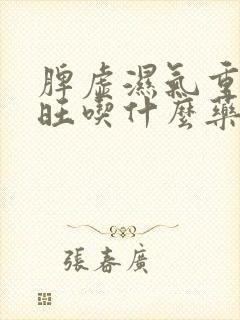 脾虛濕氣重
旺喫什麼藥
張春廣